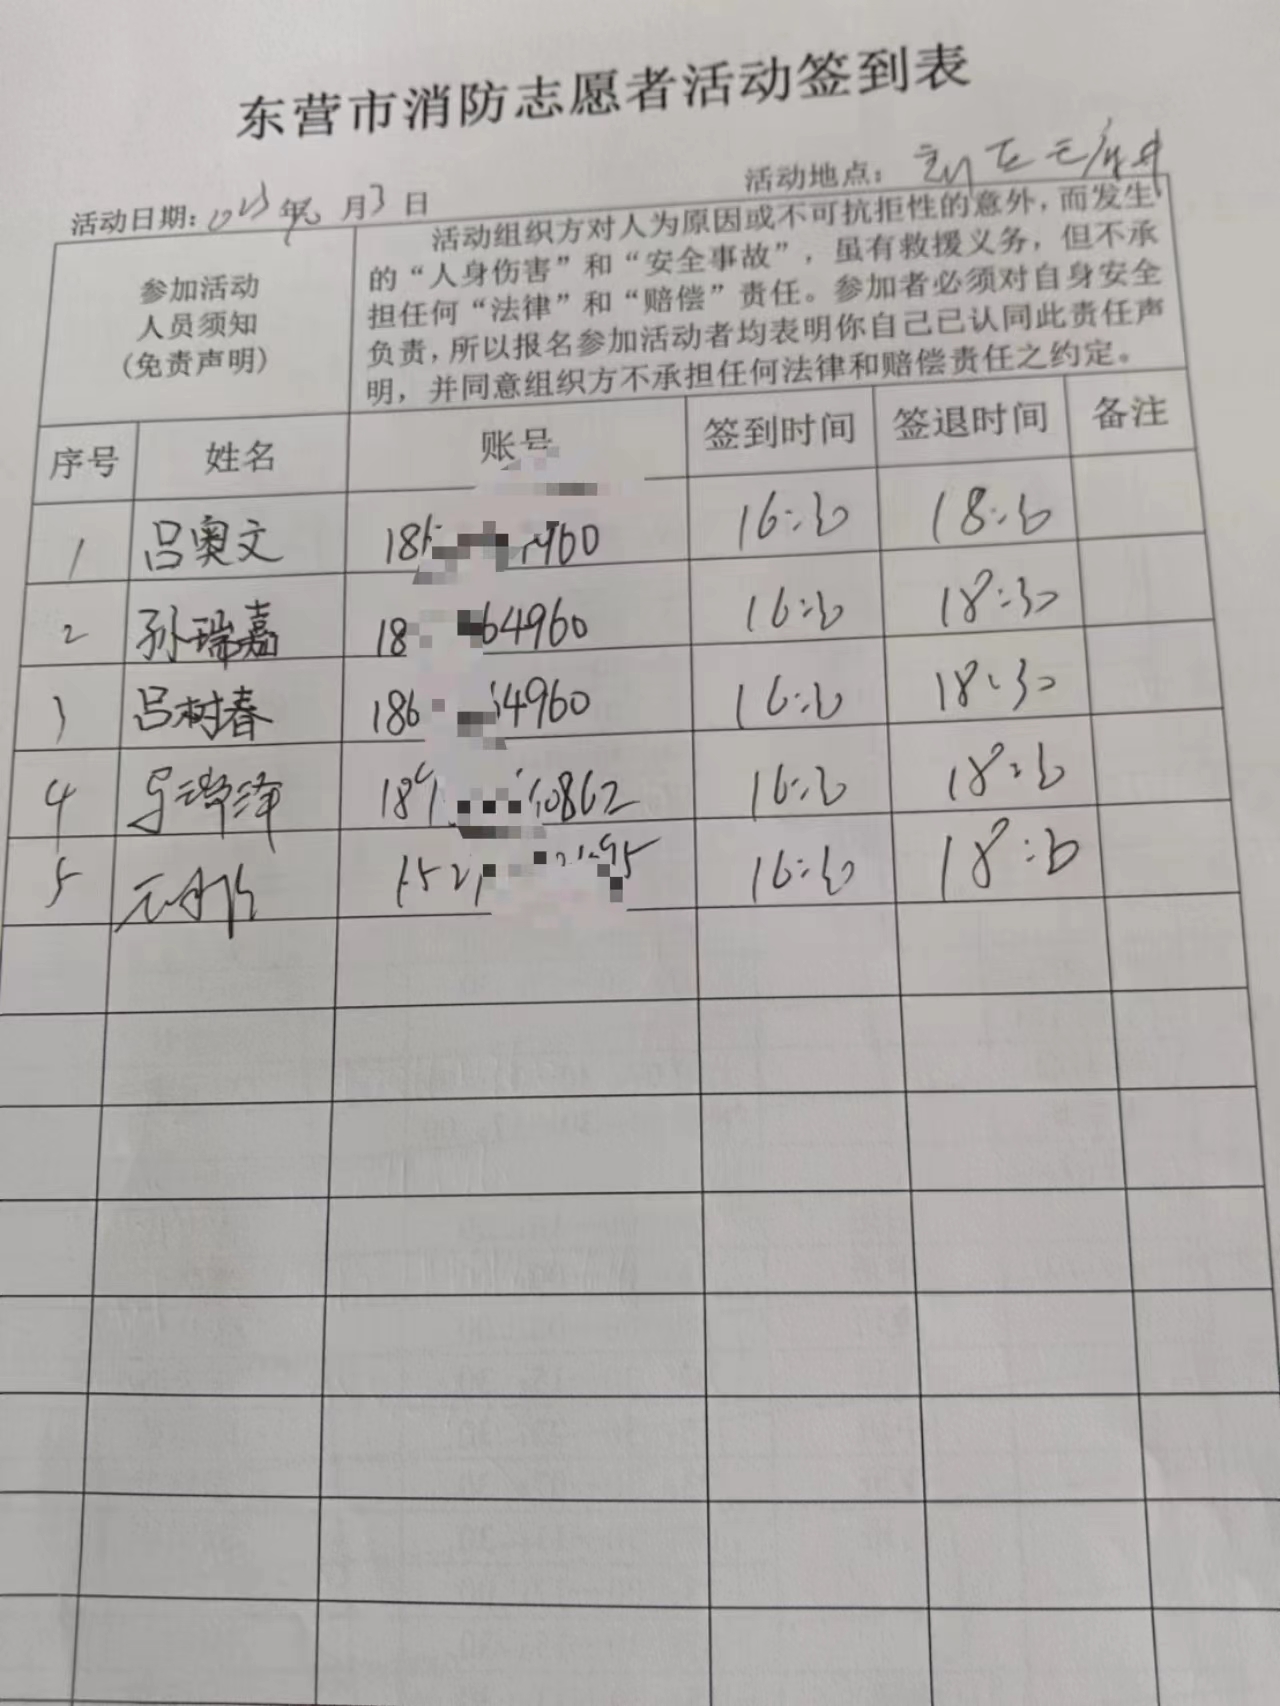 东营市消防志愿者活动签到表
活动日期：2023年 月3日
活动地点：
参加活动
人员须知
（免责声明）
活动组织方对人为原因或不可抗拒性的意外，而发生
的“人身伤害”和“安全事故”，虽有救援义务，但不承
担任何“法律”和“赔偿”责任。参加者必须对自身安全
负责，所以报名参加活动者均表明你自己已认同此责任声
明，并同意组织方不承担任何法律和赔偿责任之约定。
序号 姓名 账号 签到时间 签退时间 备注
1 吕奥文 18 960 16:30 18:30
2 孙瑞嘉 18 64960 16:30 18:30
3 吕树春 186 4960 16:30 18:30
4 18 0862 16:30 18:30
5 152 95 16:30 18:30